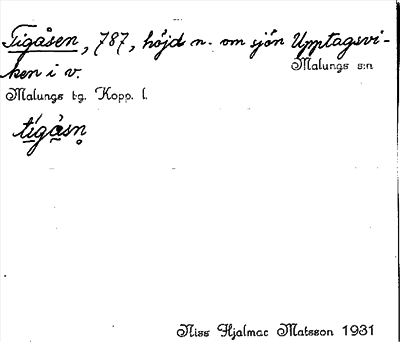 Tigåsen, 787, höjd n. om sjön Upptagsvi-
ken i v.
Malungs s:n
Malungs tg. Kopp. l.
tígàsn̥
Niss Hjalmar Matsson 1931